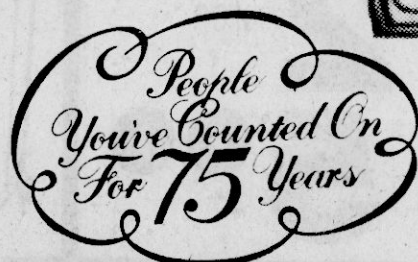 People
You've Counted On
For 75 Years